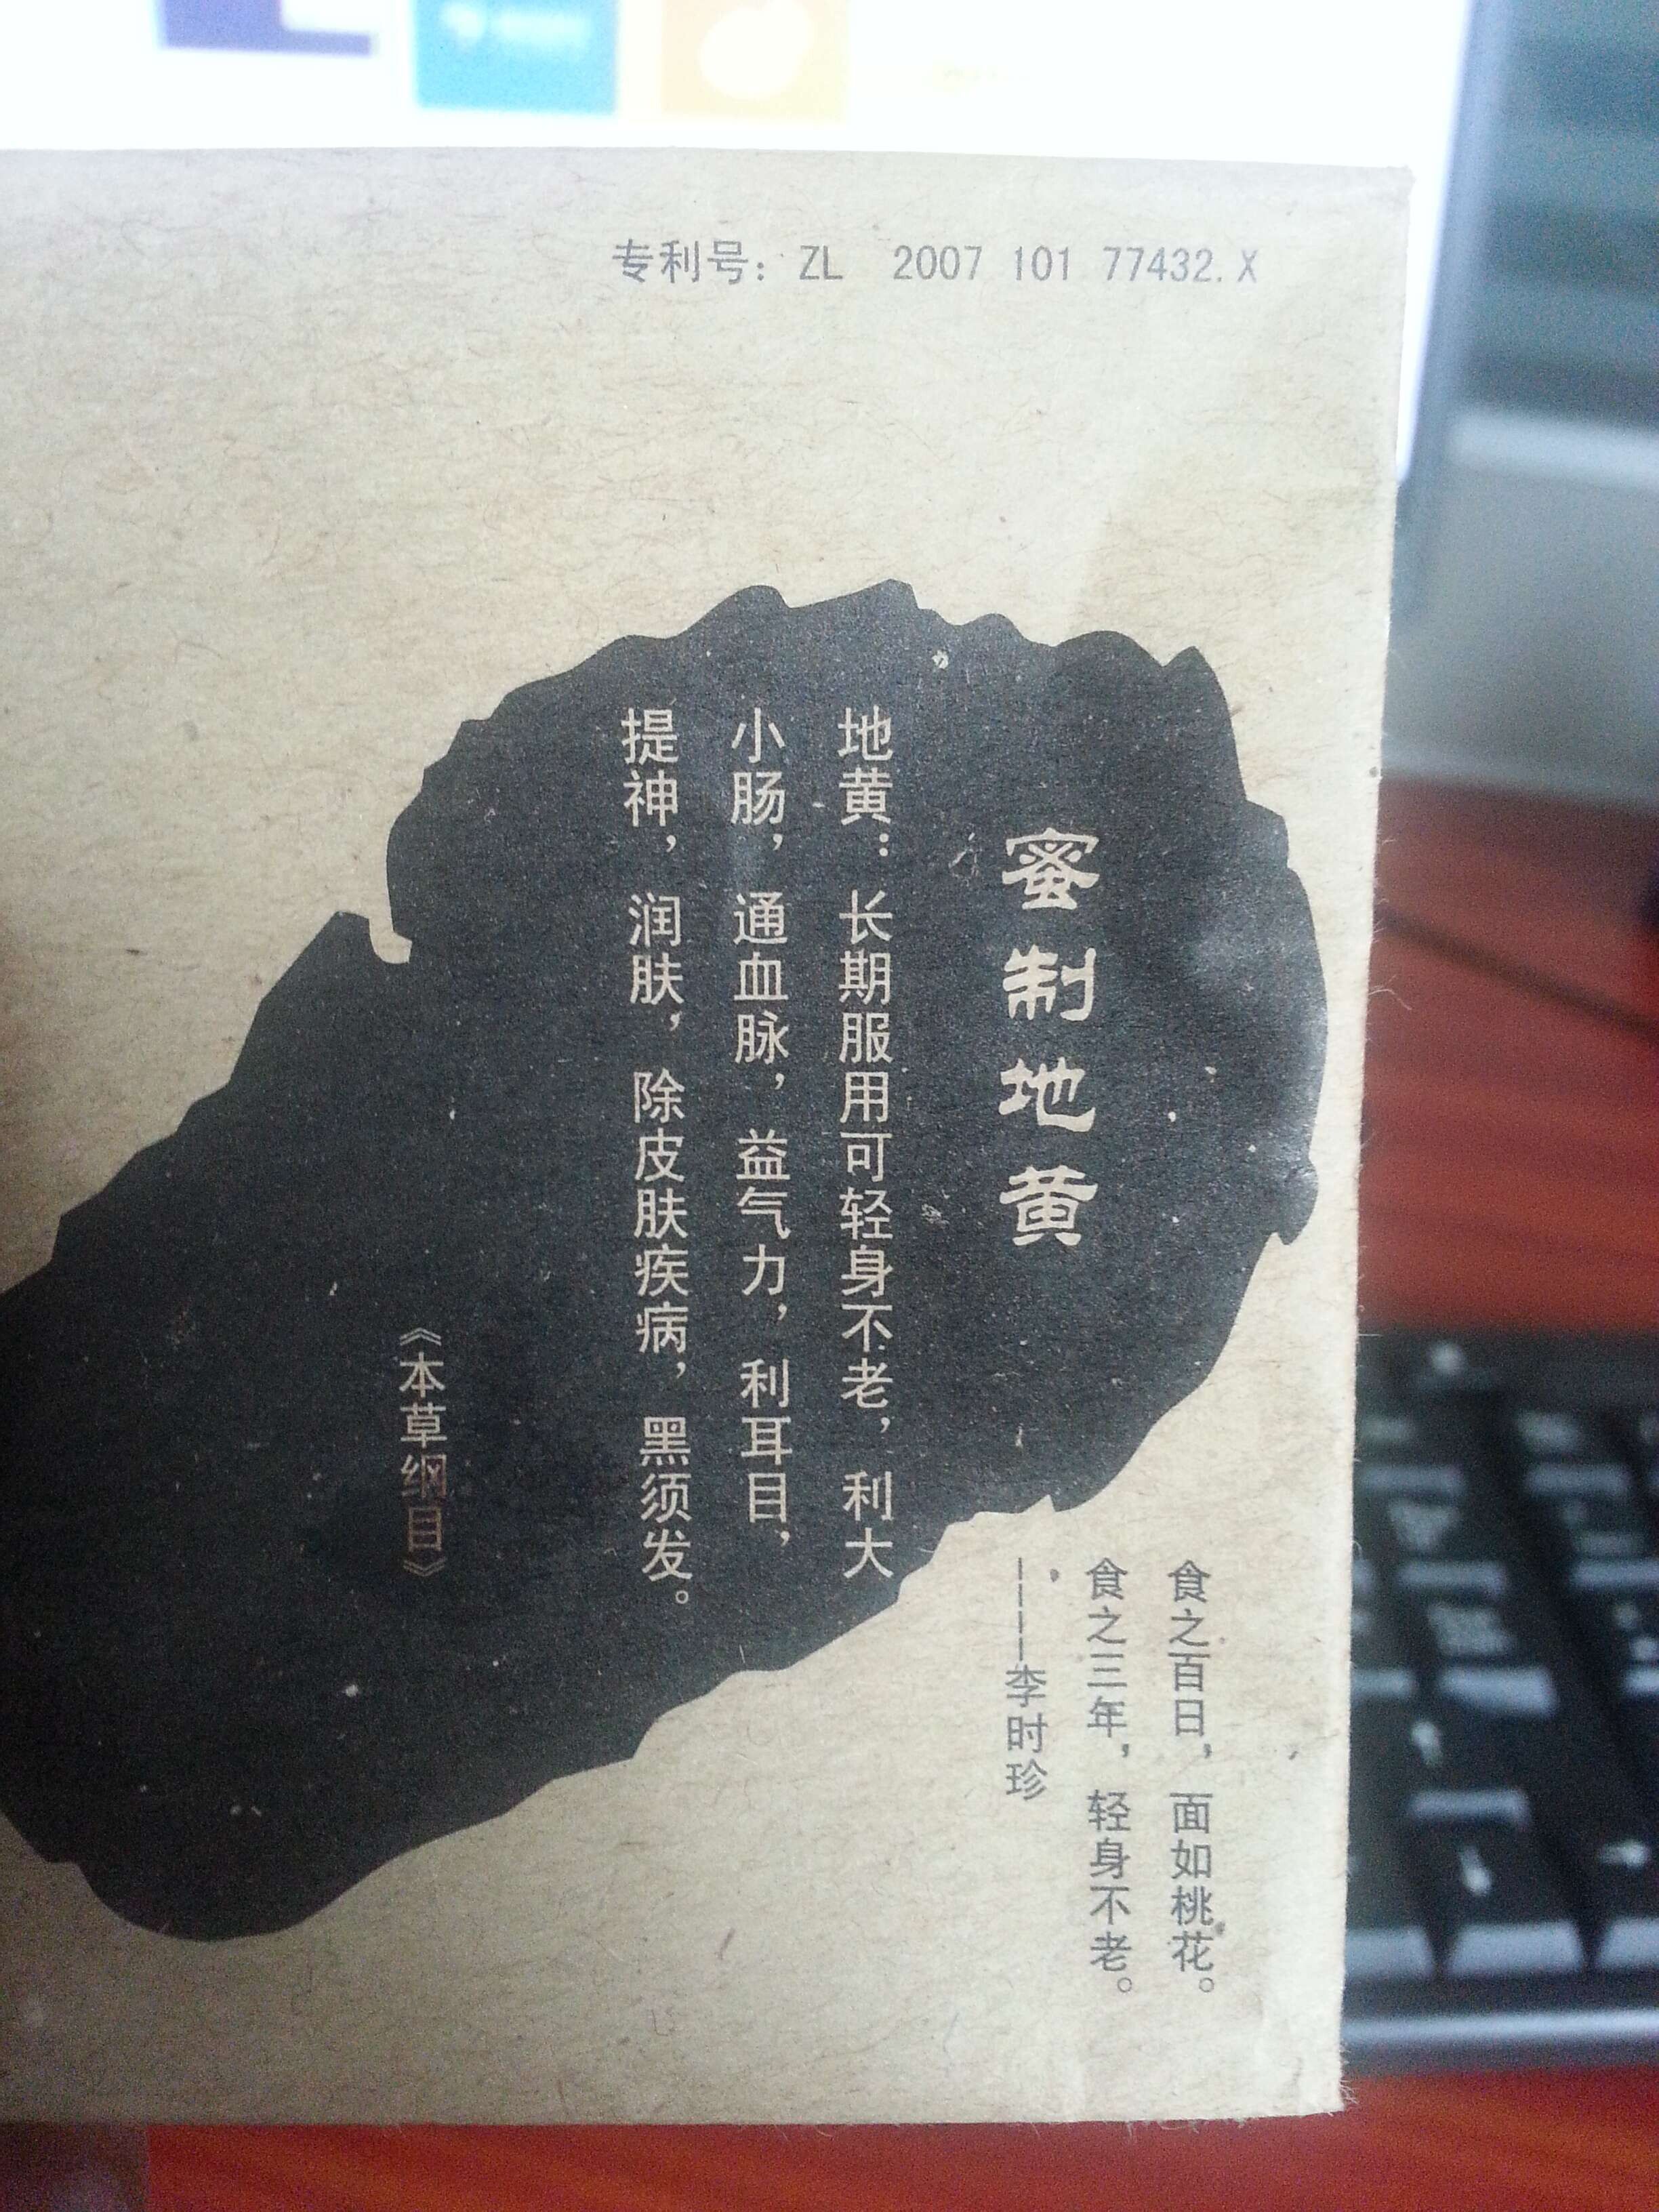 专利号：ZL 2007 101 77432.X
蜜制地黄
地黄：长期服用可轻身不老，利大
小肠，通血脉，益气力，利耳目，
提神，润肤，除皮肤疾病，黑须发。
《本草纲目》
食之百日，面如桃花。
食之三年，轻身不老。
————李时珍